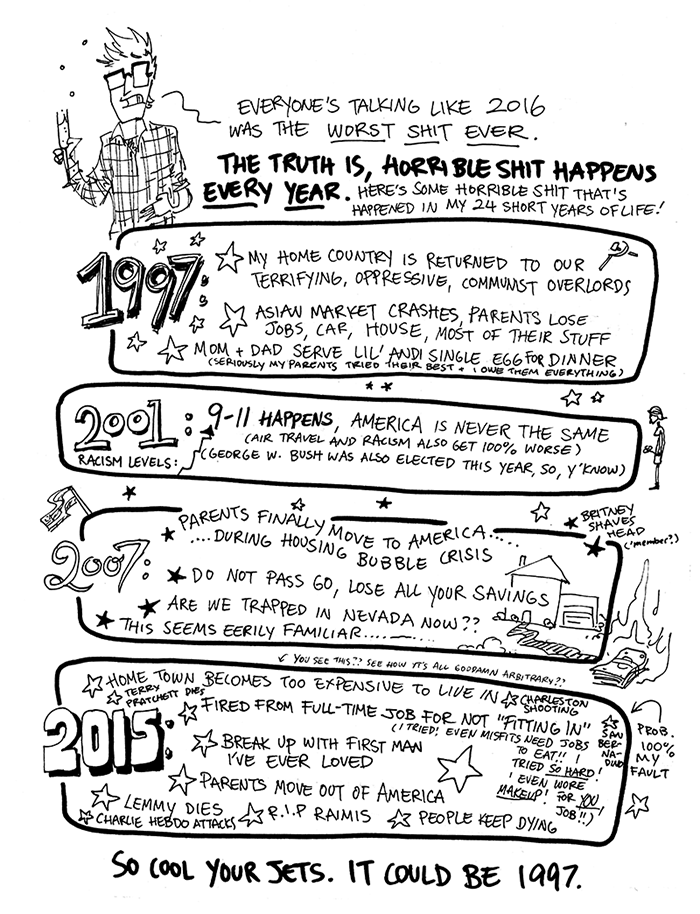 EVERYONE'S TALKING LIKE 2016
WAS THE WORST SHIT EVER.
THE TRUTH IS, HORRIBLE SHIT HAPPENS
EVERY YEAR. HERE'S SOME HORRIBLE SHIT THAT'S
HAPPENED IN MY 24 SHORT YEARS OF LIFE!
1997:
MY HOME COUNTRY IS RETURNED TO OUR
TERRIFYING, OPPRESSIVE, COMMUNST OVERLORDS
ASIAN MARKET CRASHES, PARENTS LOSE
JOBS, CAR, HOUSE, MOST OF THEIR STUFF
MOM + DAD SERVE LIL' ANDI SINGLE EGG FOR DINNER
(SERIOUSLY MY PARENTS TRIED THEIR BEST + I OWE THEM EVERYTHING)
2001:
9-11 HAPPENS, AMERICA IS NEVER THE SAME
(AIR TRAVEL AND RACISM ALSO GET 100% WORSE)
RACISM LEVELS:
(GEORGE W. BUSH WAS ALSO ELECTED THIS YEAR, SO, Y'KNOW)
BRITNEY
SHAVES
HEAD
('member?)
2007:
PARENTS FINALLY MOVE TO AMERICA.....
....DURING HOUSING BUBBLE CRISIS
DO NOT PASS GO, LOSE ALL YOUR SAVINGS
ARE WE TRAPPED IN NEVADA NOW??
THIS SEEMS EERILY FAMILIAR..........
YOU SEE THIS?? SEE HOW IT'S ALL GODDAMN ARBITRARY??
2015:
HOME TOWN BECOMES TOO EXPENSIVE TO LIVE IN
TERRY
PRATCHETT DIES
CHARLESTON
SHOOTING
FIRED FROM FULL-TIME JOB FOR NOT "FITTING IN"
(I TRIED! EVEN MISFITS NEED JOBS
TO EAT!! I
TRIED SO HARD!
I EVEN WORE
MAKEUP! FOR YOU,
JOB!!)
SAN
BER-
NA-
DINO
PROB.
100%
MY
FAULT
BREAK UP WITH FIRST MAN
I'VE EVER LOVED
PARENTS MOVE OUT OF AMERICA
LEMMY DIES
R.I.P RAIMIS
CHARLIE HEBDO ATTACKS
PEOPLE KEEP DYING
SO COOL YOUR JETS. IT COULD BE 1997.